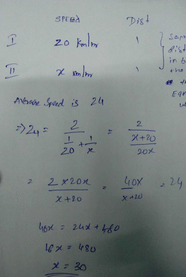 SPEED DIST
I 20 km/hr 1
II x km/hr 1
Average Speed is 24
⇒ 24 = 2 / (1/20 + 1/x) = 2 / ((x+20)/20x)
= 2×20x / (x+20) = 40x / (x+20) = 24
40x = 24x + 480
16x = 480
x = 30